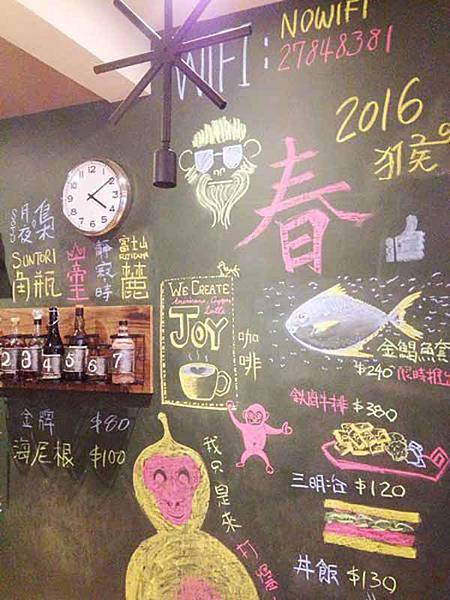 NOWIFI
WIFI:
27848381
2016
猴
春
SUNTORI
角瓶
靜寂時
富士山
麓
WE CREATE
JOY
Latte
咖啡
金鯧魚套
$240 限時推出
鐵闆牛排 $380
2 3 4 5 6 7
金牌 $80
海尼根 $100
我只是來打醬
三明治 $120
丼飯 $130